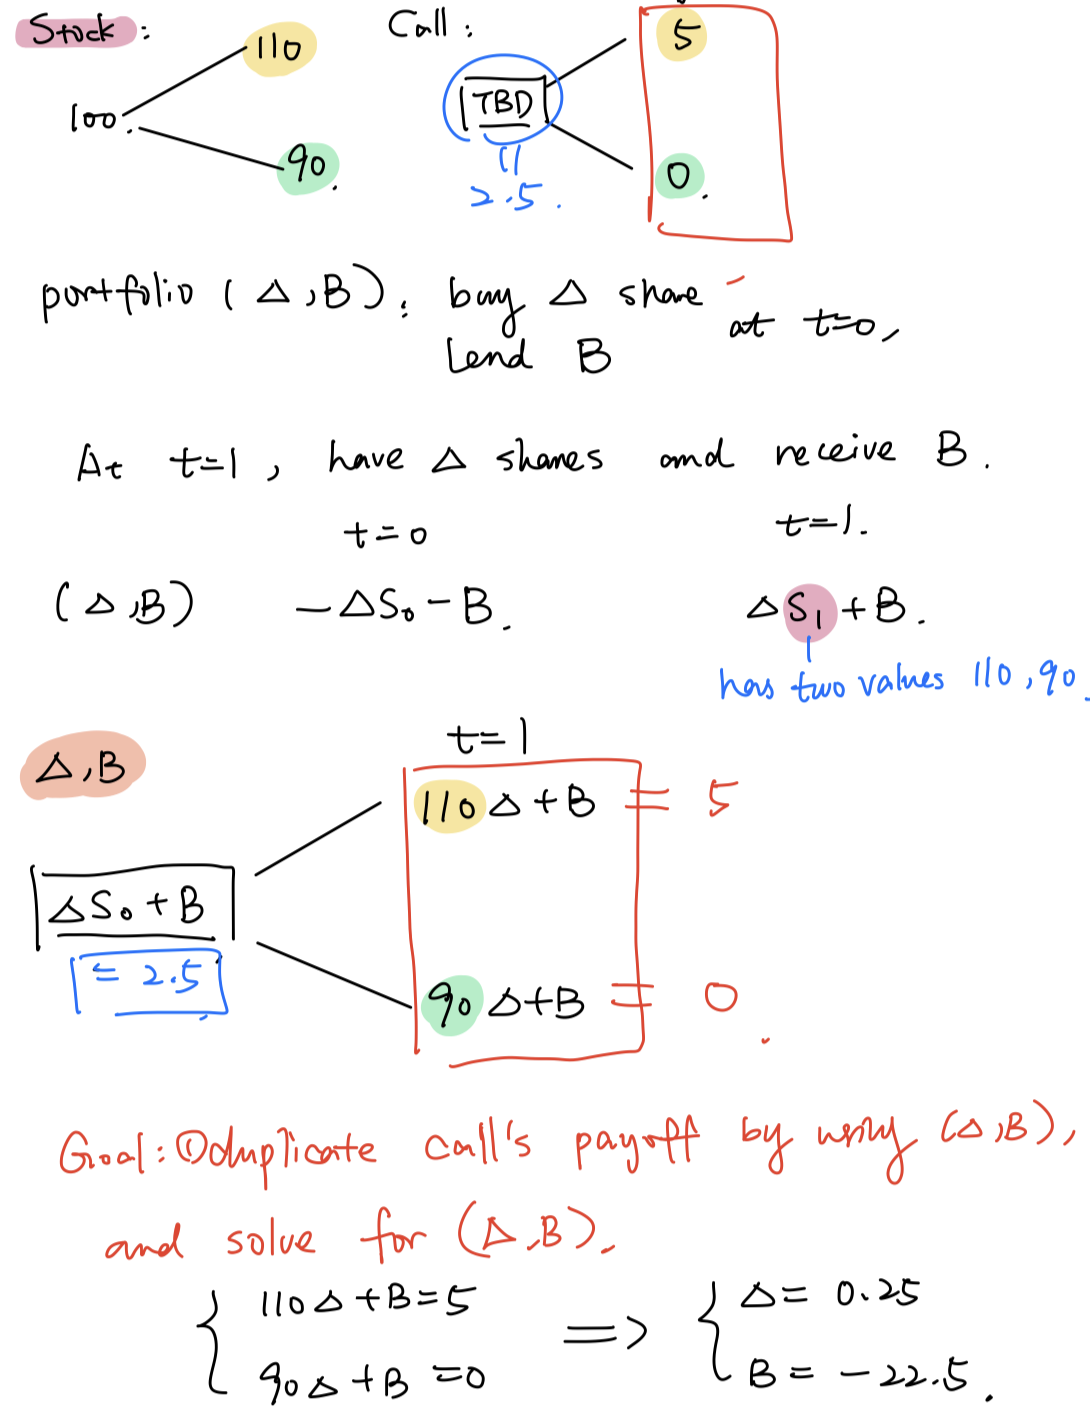 Stock: Call:
110 5
100. TBD
90. 0.
||
2.5.
portfolio (Δ,B): buy Δ share
at t=0,
Lend B
At t=1, have Δ shares and receive B.
t=0 t=1.
(Δ,B) -ΔS₀-B. ΔS₁+B.
has two values 110,90.
t=1
Δ,B
110Δ+B = 5
ΔS₀+B
= 2.5
90Δ+B = 0.
Goal: ① duplicate call's payoff by using (Δ,B),
and solve for (Δ,B).
{ 110Δ+B=5 => { Δ= 0.25
90Δ+B=0 B= -22.5.